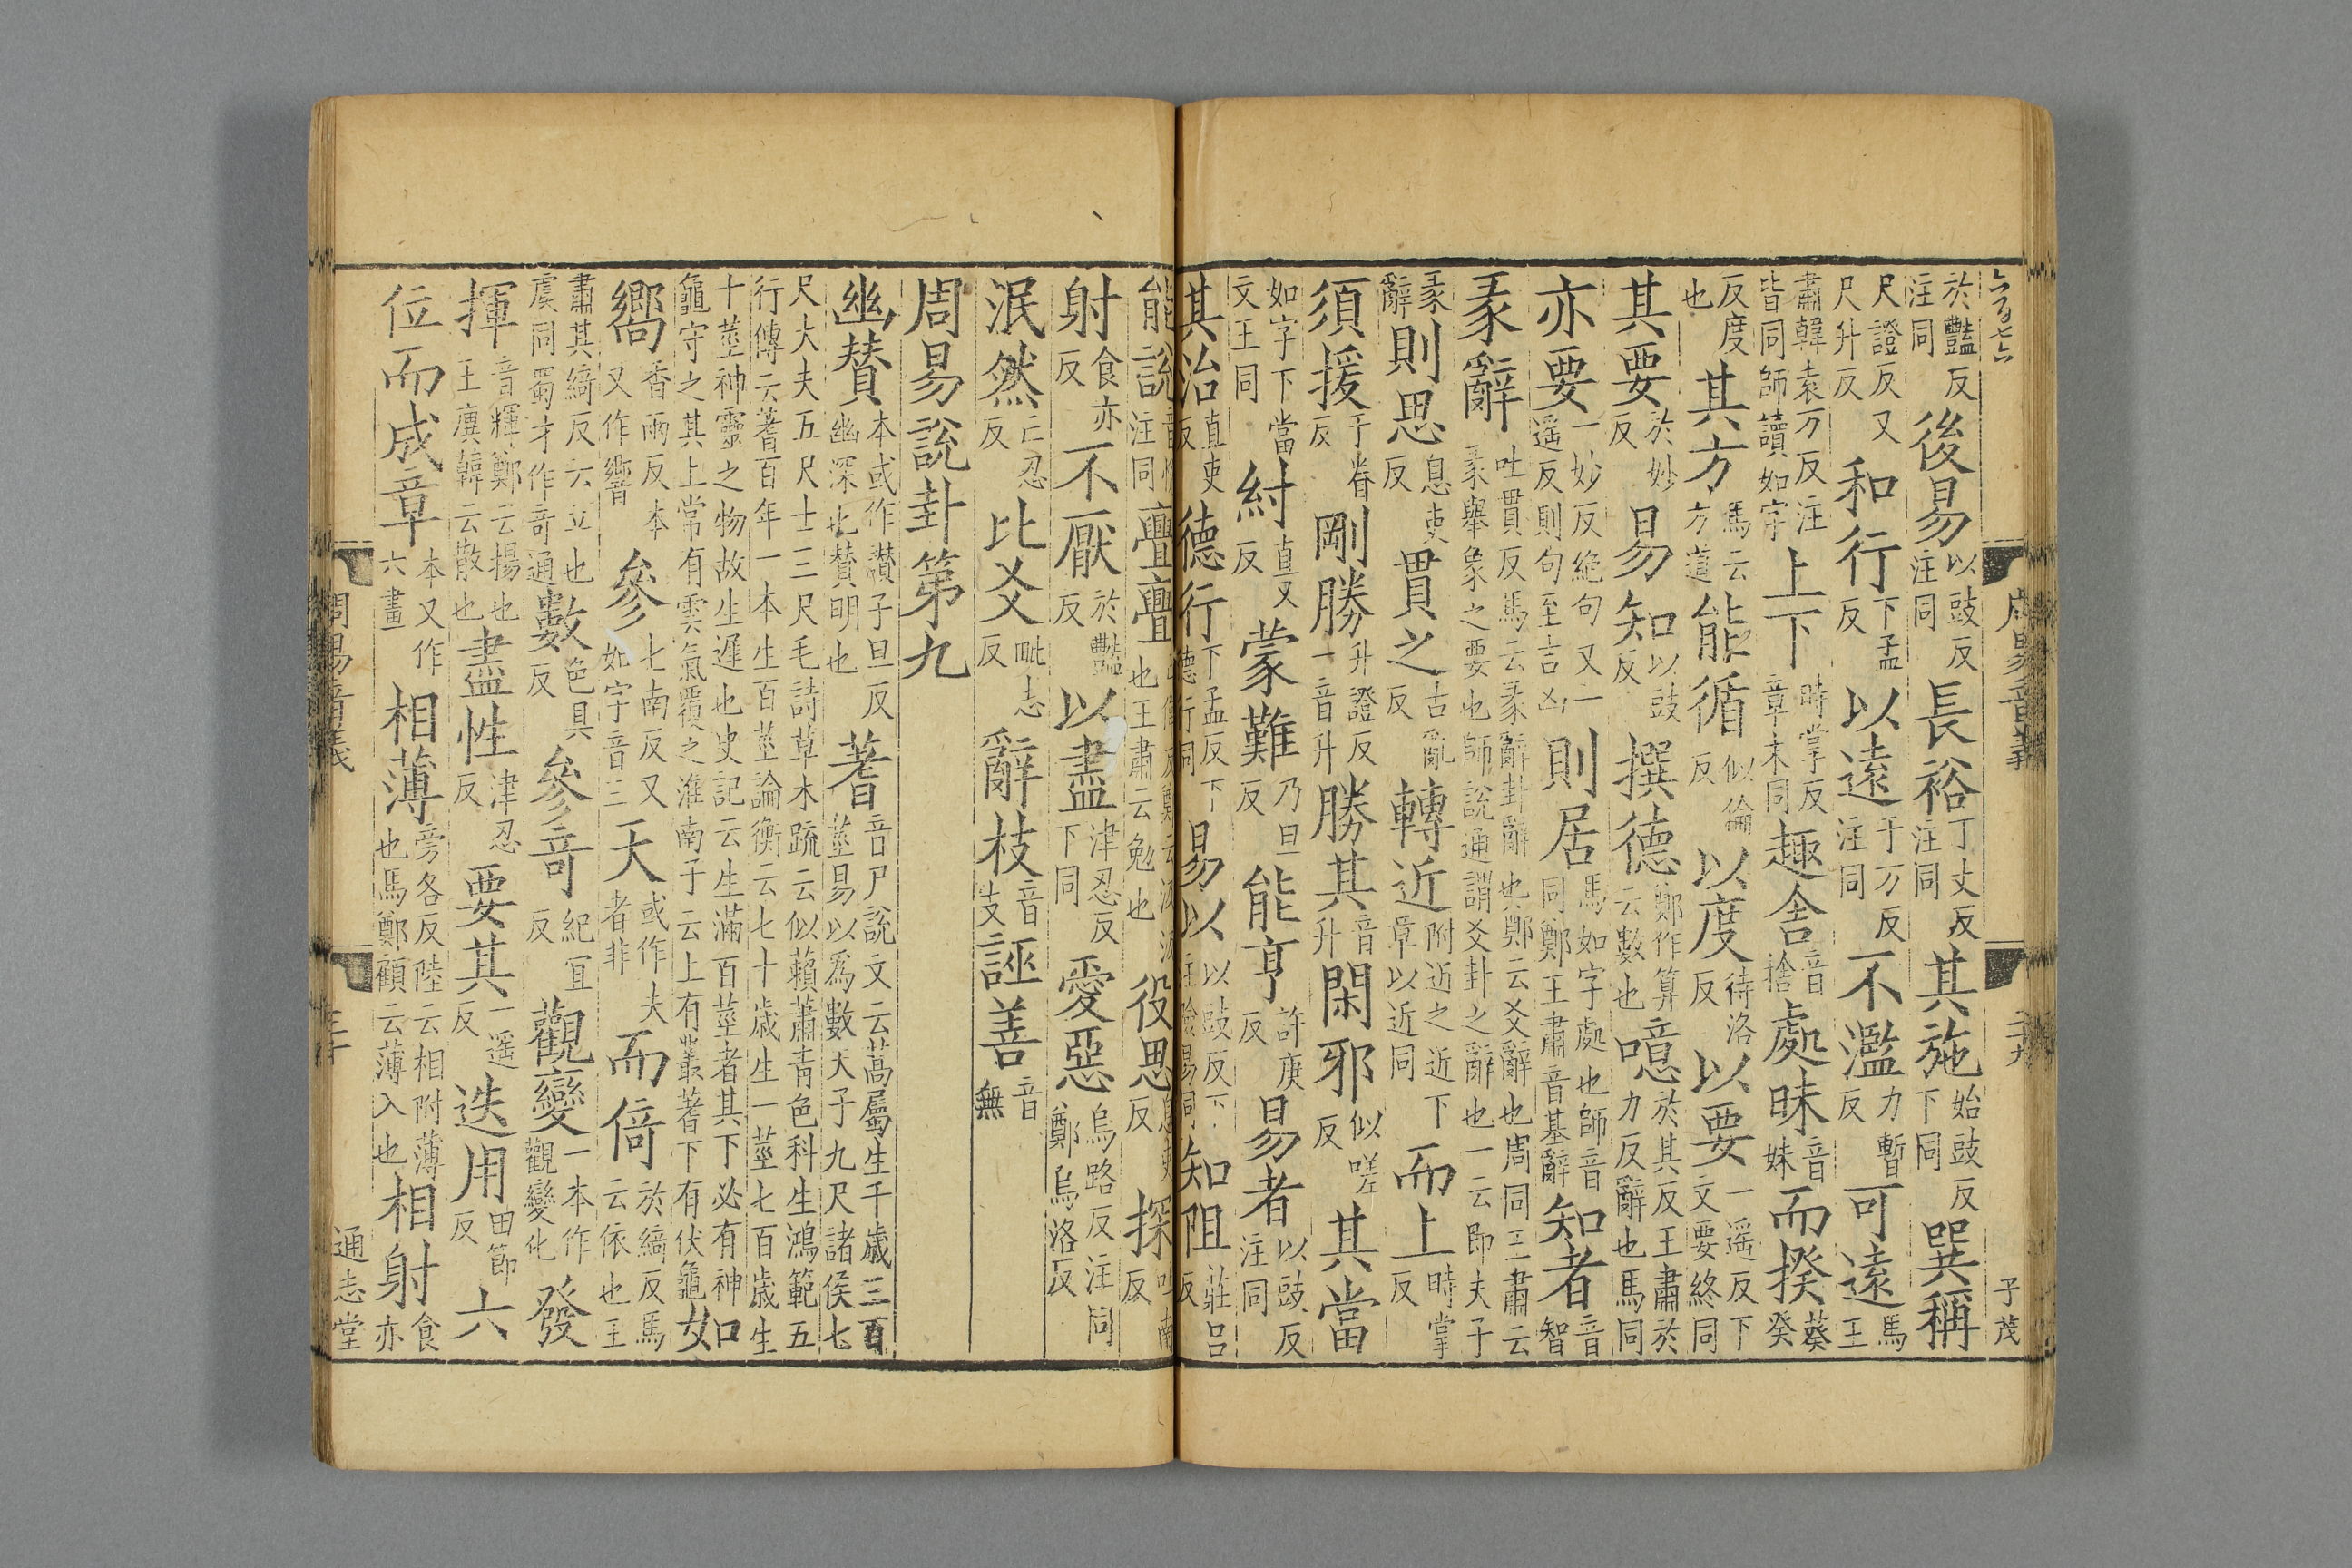 六百七六
子茂
於豔反注同後易以豉反注同長裕丁丈反注同其施始豉反下同巽稱
尺證反又尺升反和行下孟反以遠于万反注同不濫力暫反可遠馬王
肅韓袁万反注皆同師讀如字上下時掌反章末同趣舍音捨處昧音妹而揆葵癸
反度也其方馬云方道能循似倫反以度待洛反以要一遥反下文要終同
其要於妙反易知以豉反撰德鄭作算云數也噫於其反王肅於力反辭也馬同
亦要一妙反絶句又一遥反則句至吉凶則居馬如字處也師音同鄭王肅音基辭知者音智
彖辭吐貫反馬云彖辭卦辭也鄭云爻辭也周同王肅云彖舉象之要也師說通謂爻卦之辭也一云即夫子
彖辭則思息吏反貫之古亂反轉近附近之近下章以近同而上時掌反
須援于眷反剛勝升證反一音升勝其音升閑邪似嗟反其當
如字下當文王同紂直又反蒙難乃旦反能亨許庚反易者以豉反注同
其治直吏反德行下孟反下德行同易以以豉反下注險易同知阻莊吕反
能說音悅注同亹亹也王肅云勉也役思息吏反探吐南反
射食亦反不厭於豔反以盡津忍反下同愛惡烏路反注同鄭烏洛反
泯然亡忍反比爻毗志反辭枝音支誣善音無
周易說卦第九
幽賛本或作讃子旦反幽深也賛明也蓍音尸說文云蒿屬生千歳三百莖易以爲數天子九尺諸侯七
尺大夫五尺士三尺毛詩草木疏云似藾蕭青色科生鴻範五行傳云蓍百年一本生百莖論衡云七十歳生一莖七百歳生
十莖神靈之物故生遲也史記云生滿百莖者其下必有神龜守之其上常有雲氣覆之淮南子云上有叢蓍下有伏龜如
嚮香兩反本又作響參七南反又如字音三天或作夫者非而倚於綺反馬云依也王
肅其綺反云立也虞同蜀才作奇通數色具反參奇紀宜反觀變一本作觀變化發
揮音輝鄭云揚也王廙韓云散也盡性津忍反要其一遥反迭用田節反六
位而成章本又作六畫相薄旁各反陸云相附薄也馬鄭顧云薄入也相射食亦
周易音義
通志堂